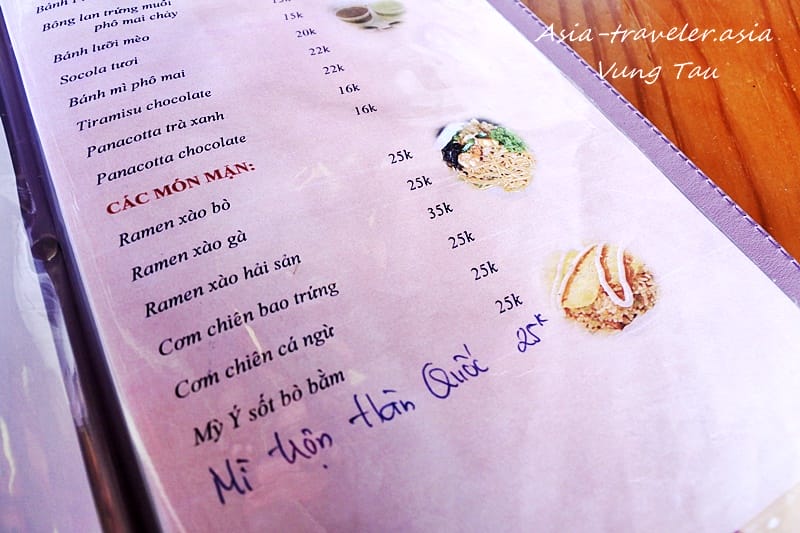 Bánh
Bông lan trứng muối
phô mai chảy 15k
Bánh lưỡi mèo 15k
Socola tươi 20k
Bánh mì phô mai 22k
Tiramisu chocolate 22k
Panacotta trà xanh 16k
Panacotta chocolate 16k
CÁC MÓN MẶN:
Ramen xào bò 25k
Ramen xào gà 25k
Ramen xào hải sản 35k
Cơm chiên bao trứng 25k
Cơm chiên cá ngừ 25k
Mỳ Ý sốt bò bằm 25k
Mì trộn Hàn Quốc 25k
Asia-traveler.asia
Vung Tau